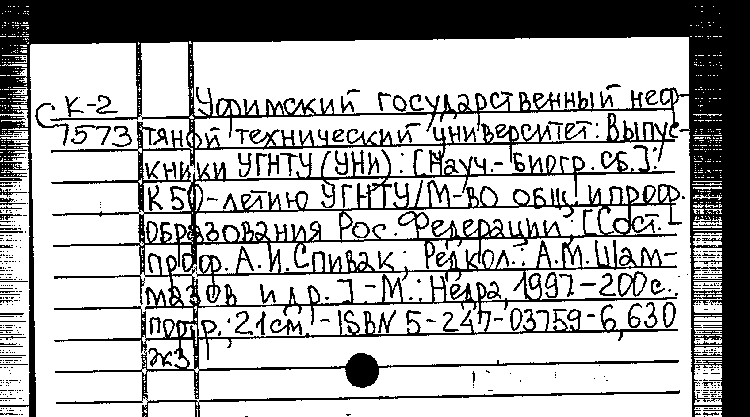 С К-2 Уфимский государственный неф-
7573 тяной технический университет: Выпус-
кники УГНТУ (УНИ): [Науч.-биогр. сб.]:
К 50-летию УГНТУ/М-во общ. и проф.
образования Рос. Федерации; [Сост.-
проф. А.И.Спивак; Редкол.: А.М.Шам-
мазов и др.]-М.: Недра, 1997-200с.:
портр.; 21см.-ISBN 5-247-03759-6, 630
экз